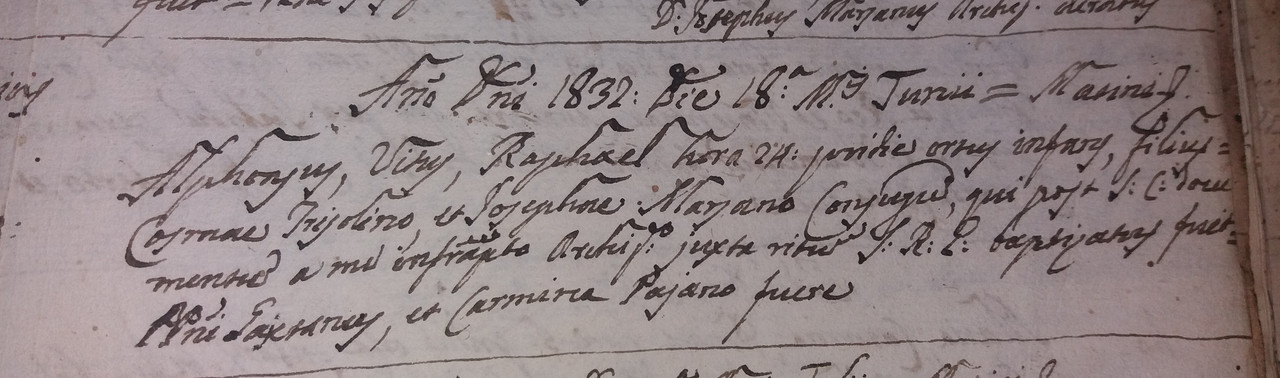 D: Josephus Marsano Archip.
Año Dñi 1832: Die 18:ª M:s Junii = Marini
Alphonsus, Vitus, Raphael hora 24: pridie ortus infans, filius =
Cosmae Trisolino, et Josephae Marsano Conjugũ, qui post S: C: docu
mentũ a me infrapto Archip:ro juxta ritũ S: R: E: baptizatus fuit =
PPni Gaetanus, et Carmina Pajano fuere